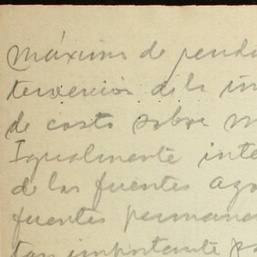 máxima de pendi
tervención de la in
de costo sobre m
Igualmente inte
de las fuentes ago
fuentes permane
tan importante pa